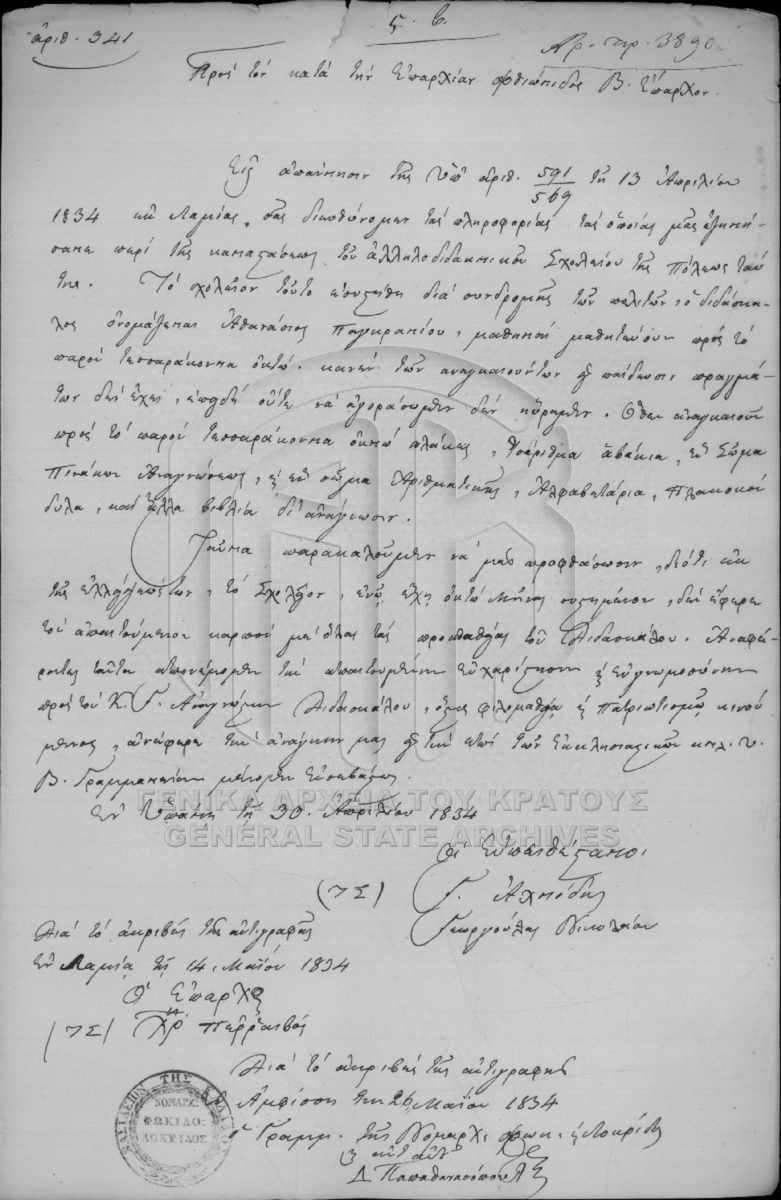 ἀριθ. 341
5. β.
Αρ. πρ. 3890
Πρὸς τὸν κατὰ τὴν Ἐπαρχίαν Φθιώτιδος Β. Ἔπαρχον.
Εἰς ἀπάντησιν τῆς ὑπ' ἀριθ. 591/569 τῇ 13 Ἀπριλίου
1834 ἐκ Λαμίας, σᾶς διευθύνομεν τὰς πληροφορίας τὰς ὁποίας μᾶς ἐζητή-
σατε περὶ τῆς καταστάσεως τοῦ ἀλληλοδιδακτικοῦ Σχολείου τῆς Πόλεως ταύ
της. Τὸ σχολεῖον τοῦτο ἐσυστήθη διὰ συνδρομῆς τῶν πολιτῶν, ὁ διδάσκα-
λος ὀνομάζεται Ἀθανάσιος Παγκρατίου, μαθηταὶ μαθητεύουν πρὸς τὸ
παρὸν τεσσαράκοντα ὀκτώ. κανὲν τῶν ἀναγκαιούντων εἰς παίδευσιν πραγμά-
των δὲν ἔχει, ἐπειδὴ οὔτε νὰ ἀγοράσωμεν δὲν ηὕραμεν. Ὅθεν ἀναγκαιοῦν
πρὸς τὸ παρὸν τεσσαράκοντα ὀκτὼ πλάκες, ἰσάριθμα ἀβάκια, ἓν Σῶμα
Πινάκων Ἀναγνώσεως, καὶ ἓν σῶμα Ἀριθμητικῆς, Ἀλφαβητάρια, Πλακοκόν
δυλα, καὶ ἄλλα βιβλία δι' ἀνάγνωσιν.
Ταῦτα παρακαλοῦμεν νὰ μᾶς προφθάσωσιν, διότι ἐκ
τῆς ἐλλείψεώς των, τὸ Σχολεῖον, ἐνῷ ἔχει ὀκτὼ Μῆνας συστημένον, δὲν ἔφερε
τὸν ἀπαιτούμενον καρπὸν μὲ ὅλας τὰς προσπαθείας τοῦ Διδασκάλου. Ἀναφέ-
ροντες ταῦτα ἀπονέμομεν τὴν ἀπαιτουμένην εὐχαρίστησιν καὶ εὐγνωμοσύνην
πρὸς τὸν Κ. Γ. Ἀναγνώστην Διδασκάλου, ὅστις φιλομαθείᾳ καὶ πατριωτισμῷ κινού
μενος, ἀνέφερε τὴν ἀνάγκην μας εἰς τὴν ἐπὶ τῶν Ἐκκλησιαστικῶν κτλ.
Β. Γραμματείαν μένομεν Εὐσεβάστως.
Ἐν Ὑπάτῃ τῇ 30. Ἀπριλίου 1834
Οἱ Εὐπειθέστατοι.
(ΤΣ) Γ. Ἀχινίδης
Γεωργούλας Νικολάου
Διὰ τὸ ἀκριβὲς τῆς ἀντιγραφῆς
Ἐν Λαμίᾳ τῇ 14, Μαΐου 1834
Ὁ Ἔπαρχος
(ΤΣ) Χρ. Περραιβός
Διὰ τὸ ἀκριβὲς τῆς ἀντιγραφῆς
Ἀμφίσσῃ τὴν 26 Μαΐου 1834
ὁ Γραμμ. τῆς Νομαρχ. Φωκ. καὶ Λοκρίδος
Δ. Παπαθανασόπουλος
ΝΟΜΑΡΧ.
ΦΩΚΙΔΟ:
ΛΟΚΡΙΔΟΣ
ΓΕΝΙΚΑ ΑΡΧΕΙΑ ΤΟΥ ΚΡΑΤΟΥΣ
GENERAL STATE ARCHIVES